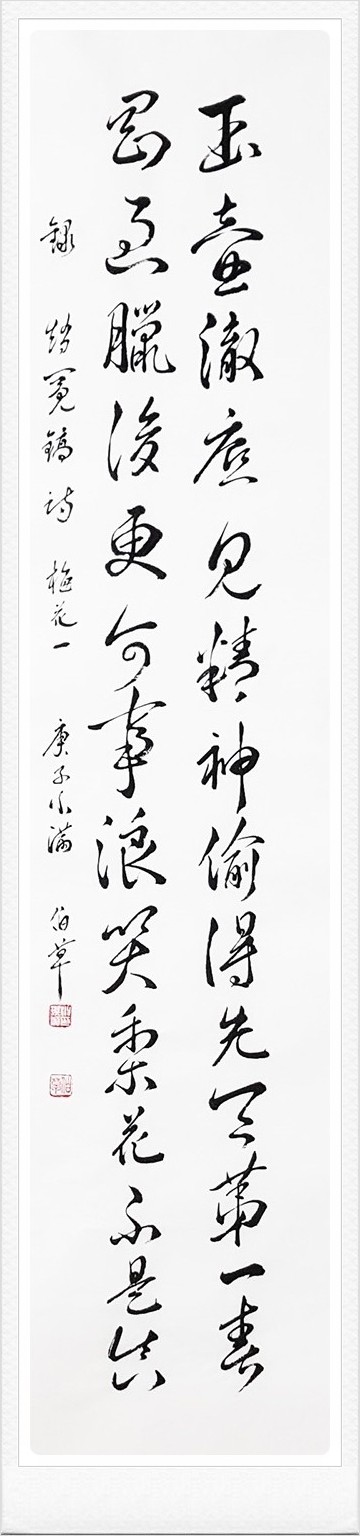 玉壺澈底見精神偷得先天第一春
臘後更何事浪笑梨花不是真
錄 趙冕鎬詩 梅花一 庚子小滿 伯草